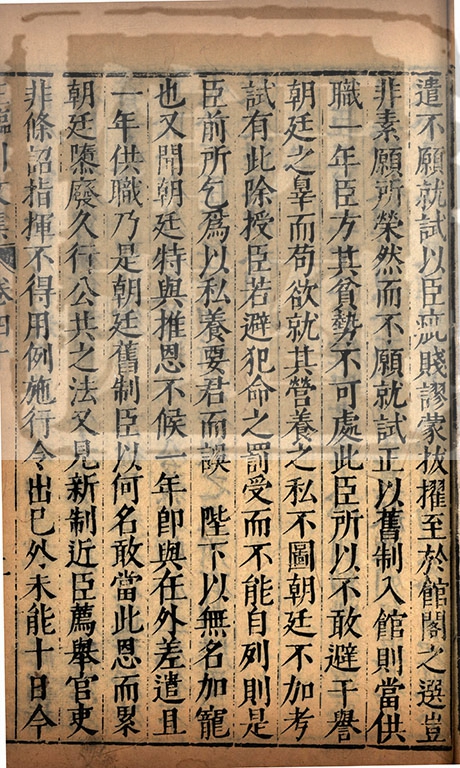 遣不願就試以臣疵賤謬蒙拔擢至於館閣之選豈
非素願所榮然而不願就試正以舊制入館則當供
職一年臣方其貧勢不可處此臣所以不敢避干譽
朝廷之辠而苟欲就其營養之私不圖朝廷不加考
試有此除授臣若避犯命之罰受而不能自列則是
臣前所乞爲以私養要君而誤 陛下以無名加寵
也又聞朝廷特與推恩不候一年即與在外差遣且
一年供職乃是朝廷舊制臣以何名敢當此恩而累
朝廷隳廢久行公共之法又見新制近臣薦舉官吏
非條詔指揮不得用例施行令出已外未能十日今
王臨川文集 卷四十